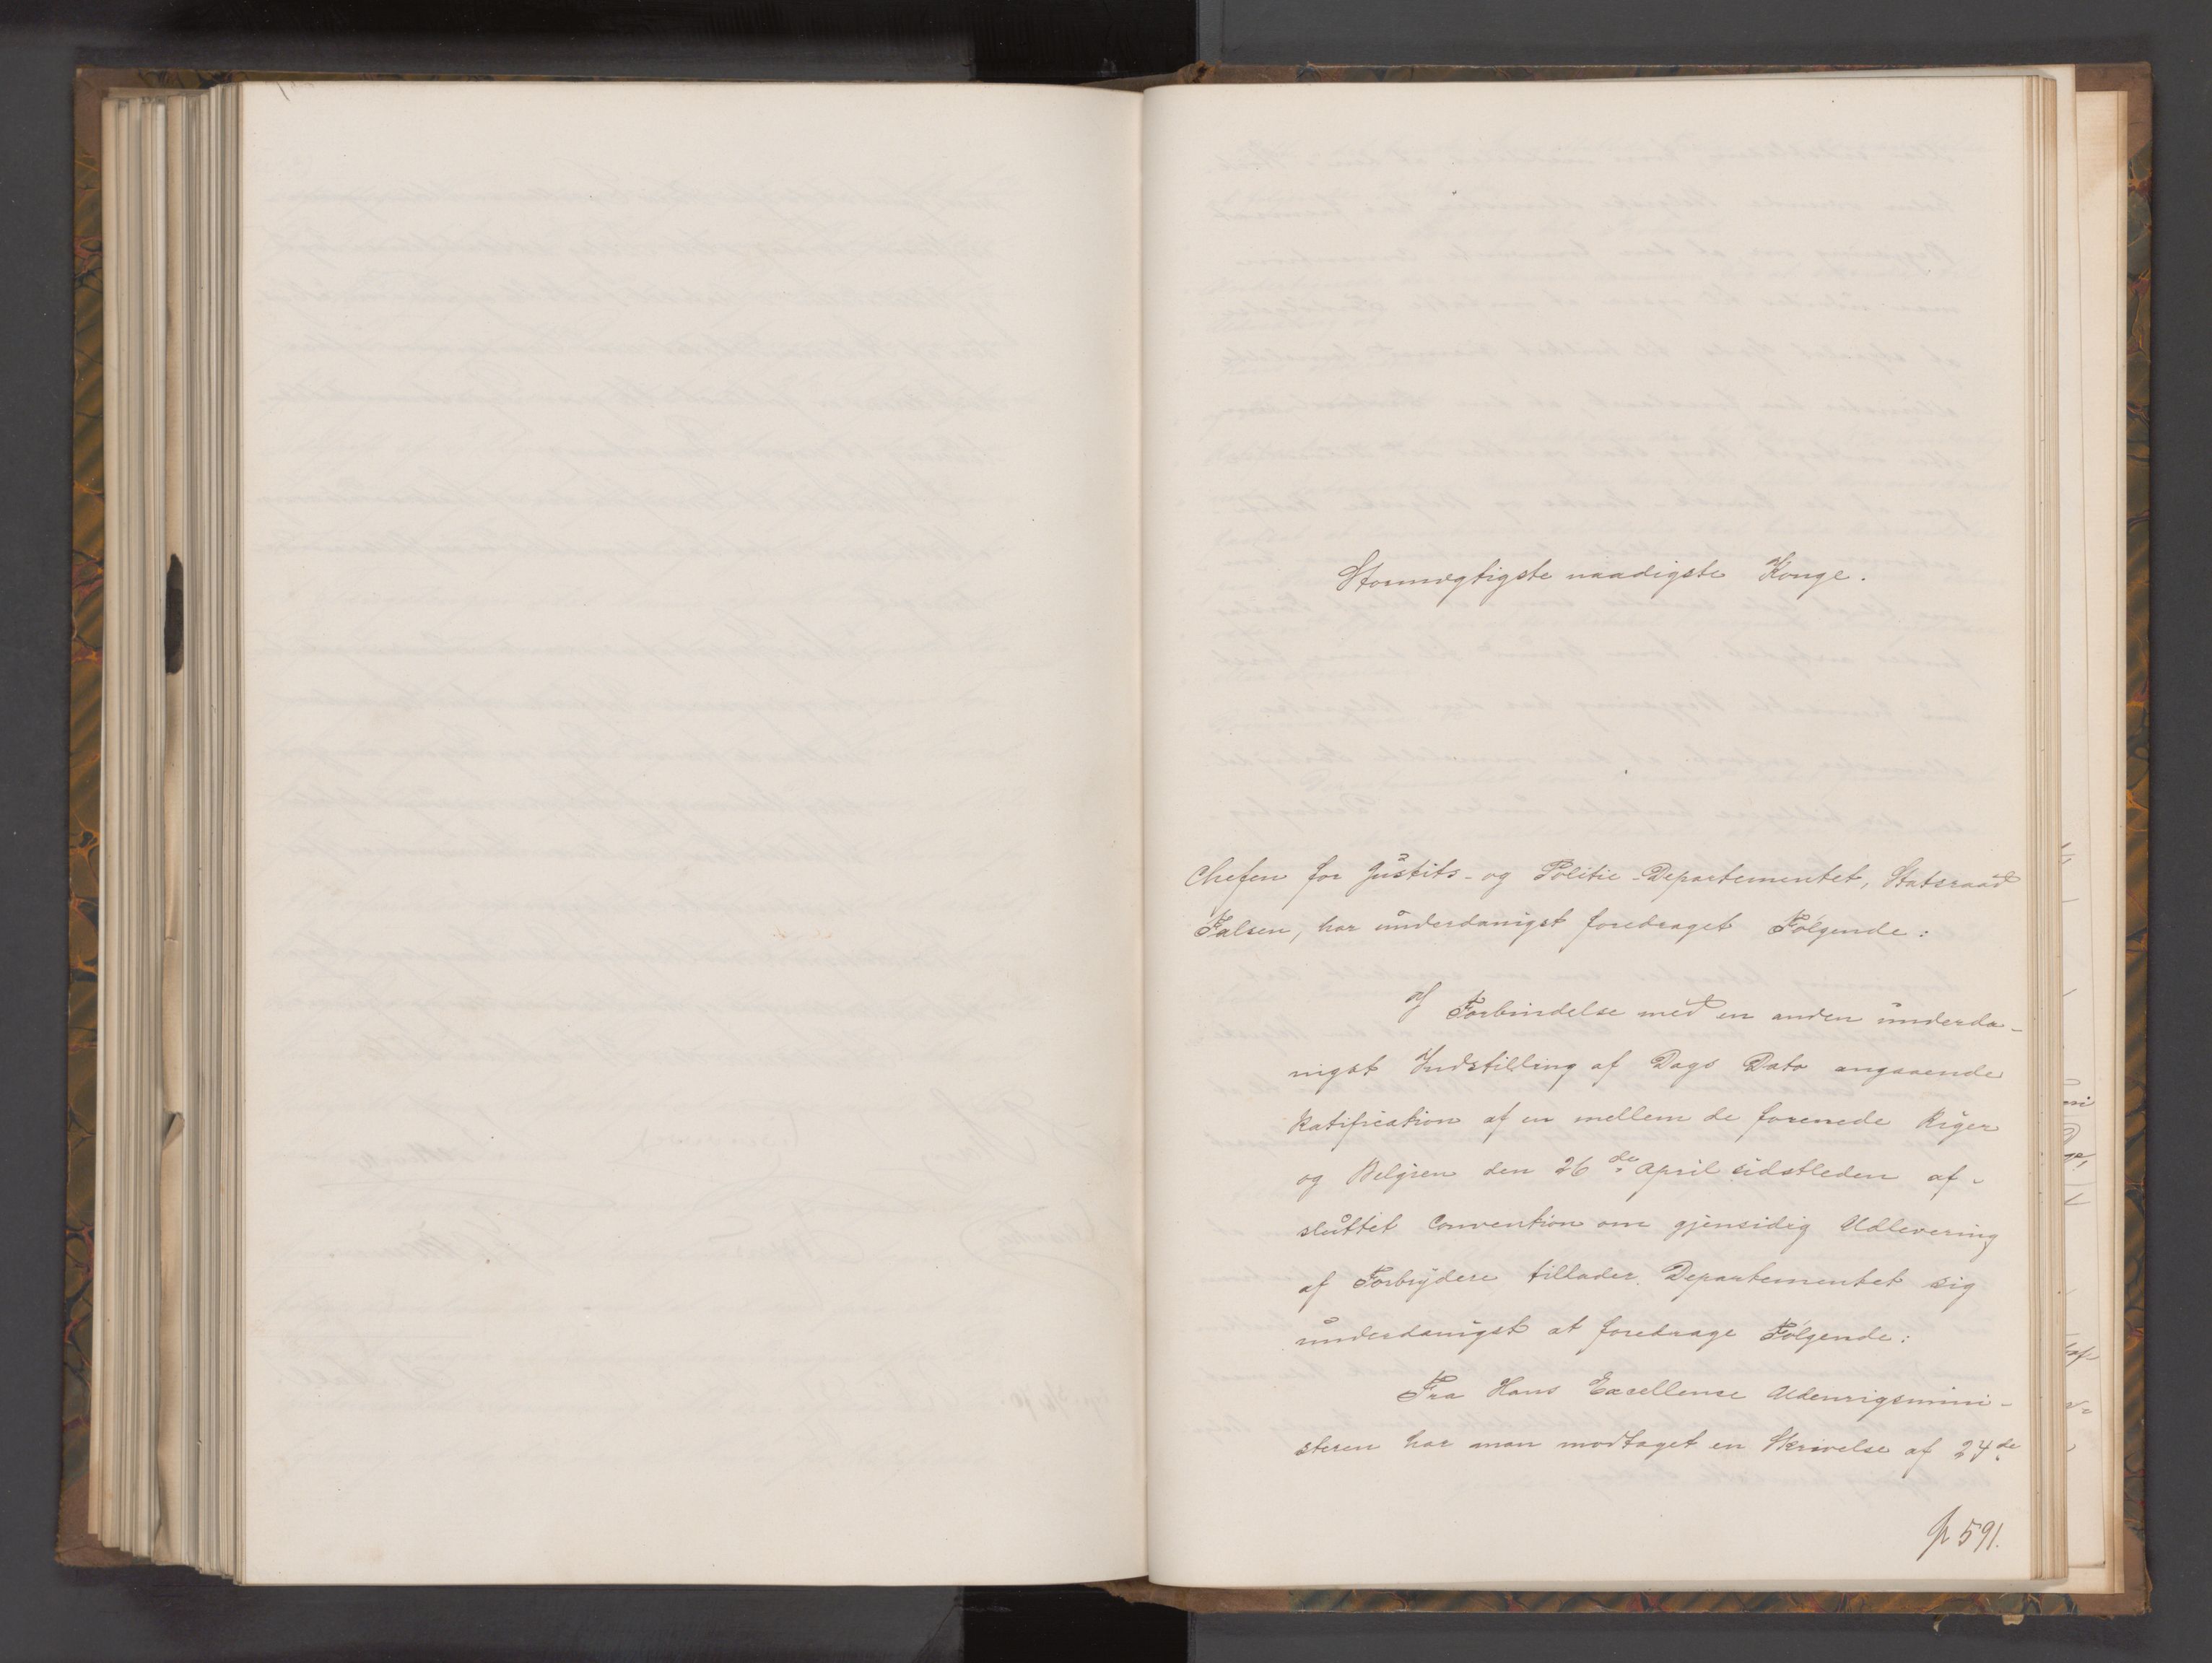 Stormægtigste naadigste Konge.
Chefen for Justits- og Politie-Departementet, Statsraad
Falsen, har underdanigst foredraget Følgende:
I Forbindelse med en anden underda-
nigst Indstilling af Dags Dato angaaende
Ratification af en mellem de forenede Riger
og Belgien den 26de April sidstleden af-
sluttet Convention om gjensidig Udlevering
af Forbrydere tillader Departementet sig
underdanigst at foredrage Følgende:
Fra Hans Excellence Udenrigsmini-
steren har man modtaget en Skrivelse af 24de
p 591.